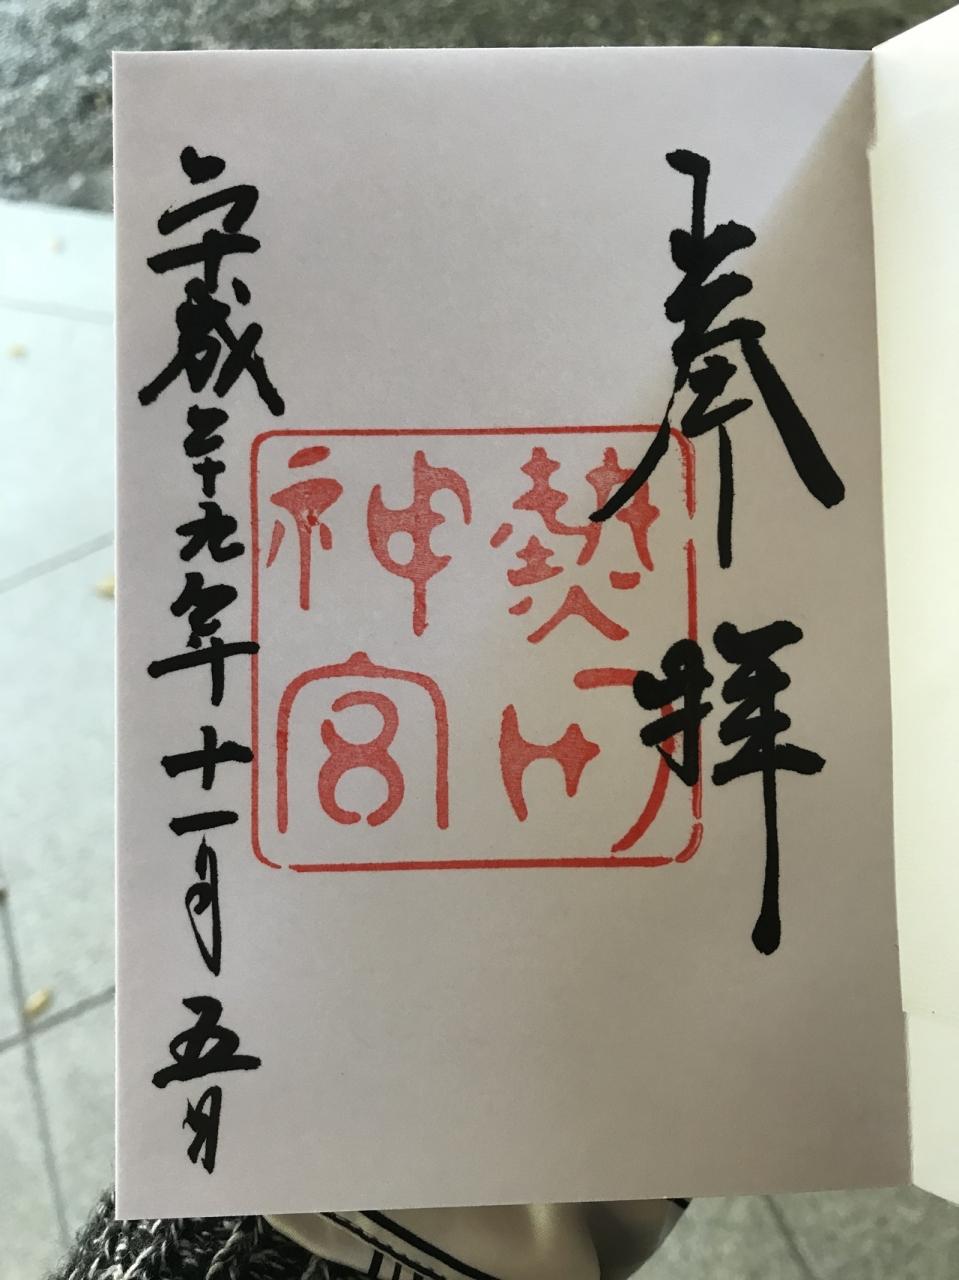 奉拝
熱田
神宮
平成二十九年十一月五日